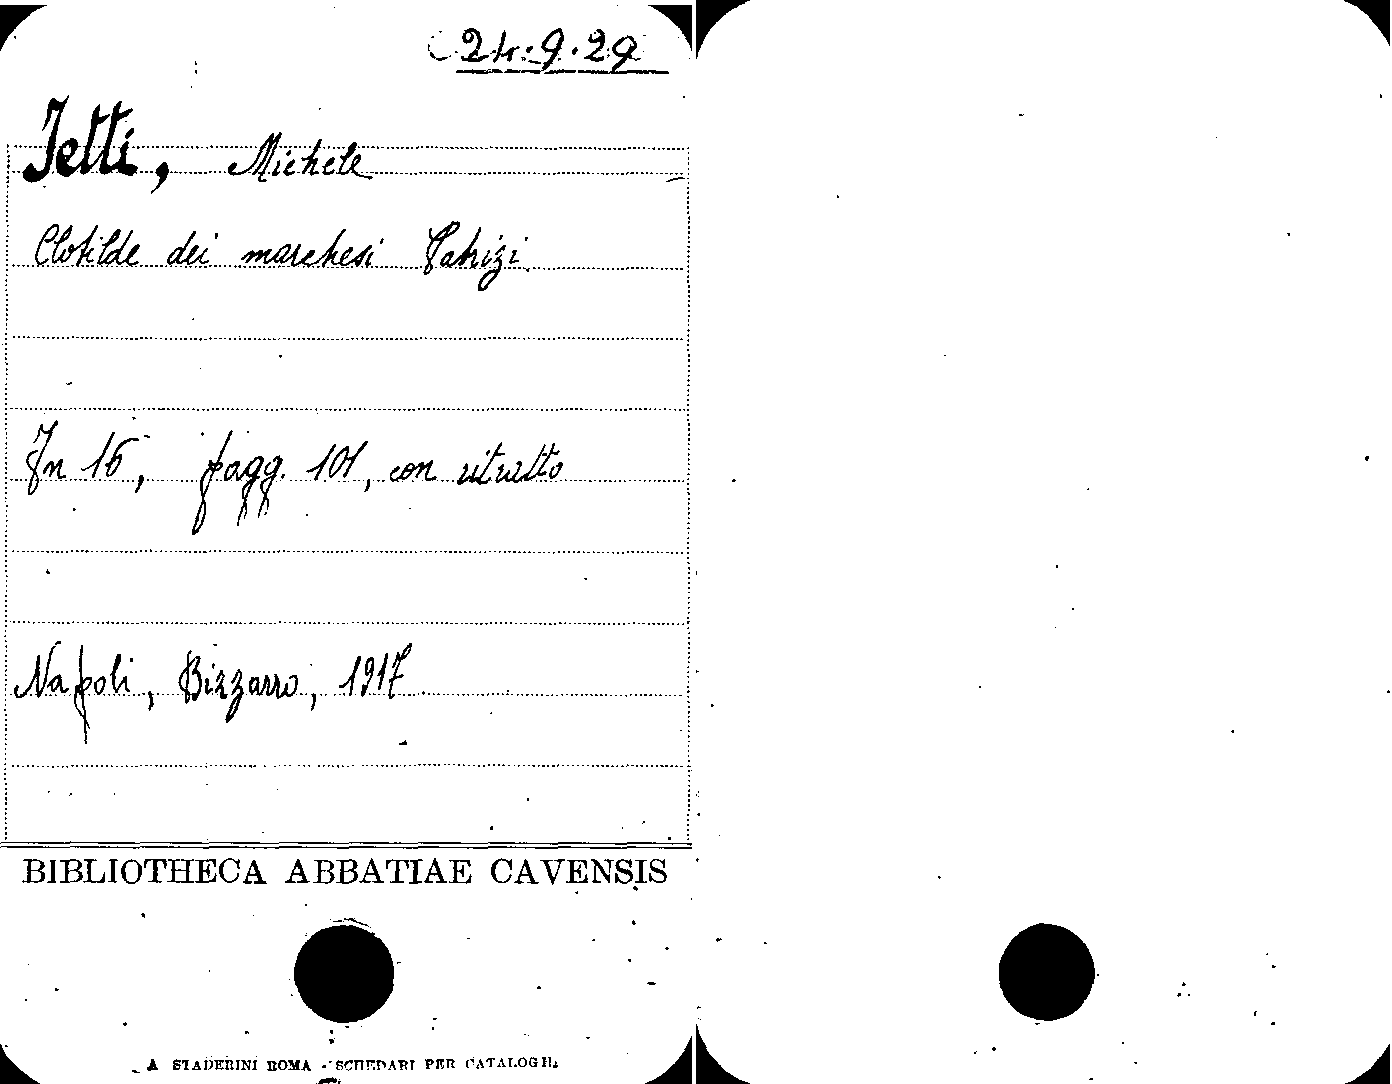 C 24.9.29
Jetti, Michele
Clotilde dei marchesi Patrizi
In 16, pagg. 101, con ritratto
Napoli, Bizzarro, 1917
BIBLIOTHECA ABBATIAE CAVENSIS
A STADERINI ROMA - SCHEDARI PER CATALOGHI